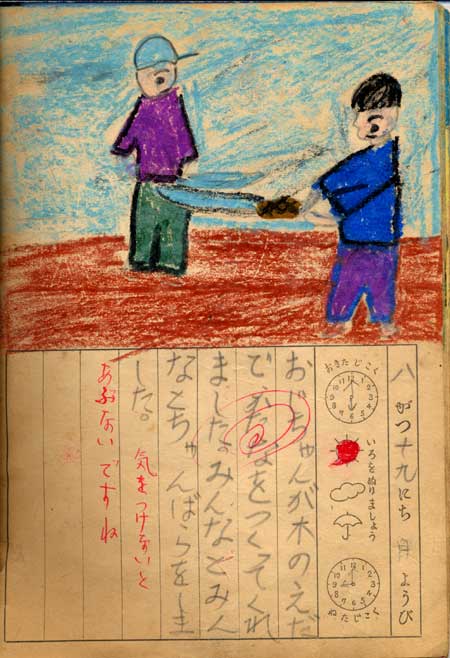 八がつ十九にち 月ようび
おきたじこく
いろをぬりましょう
ねたじこく
おじちゃんが木のえだ
でかたなをつくってくれ
ました。みんなでみん
なとちゃんばらをしま
した。
気をつけないと
あぶないですね